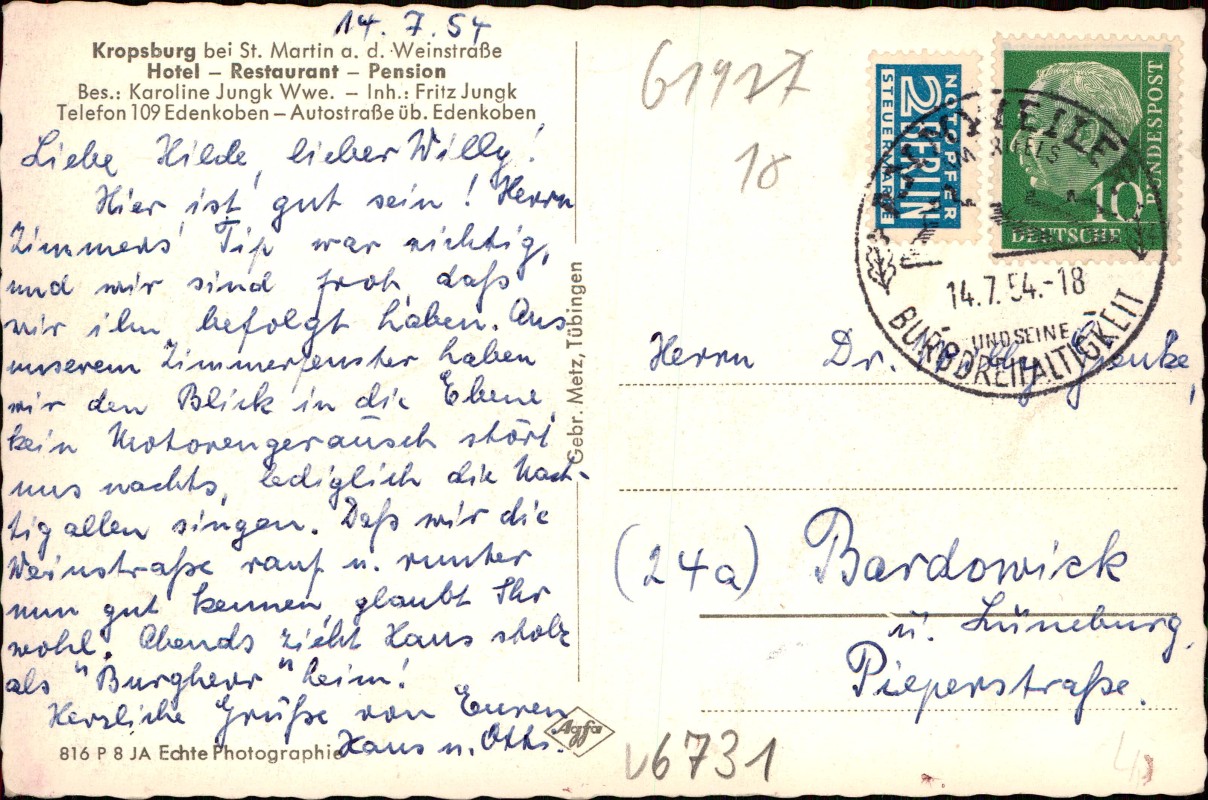 14.7.54
Kropsburg bei St. Martin a. d. Weinstraße
Hotel – Restaurant – Pension
Bes.: Karoline Jungk Wwe. – Inh.: Fritz Jungk
Telefon 109 Edenkoben – Autostraße üb. Edenkoben
Liebe Hilde, lieber Willy!
Hier ist gut sein! Herrn
Zimmers' Tip war richtig,
und wir sind froh, daß
wir ihn befolgt haben. Aus
unserem Zimmerfenster haben
wir den Blick in die Ebene,
kein Motorengeräusch stört
uns nachts, lediglich die Nach-
tigallen singen. Daß wir die
Weinstraße rauf u. runter
nun gut kennen, glaubt Ihr
wohl. Abends zieht Hans stolz
als "Burgherr" heim!
Herzliche Grüße von Euren
Hans u. Otto.
816 P 8 JA Echte Photographie
Agfa
Gebr. Metz, Tübingen
61927
18
NOTOPFER
2 BERLIN
STEUERMARKE
10
DEUTSCHE
BUNDESPOST
14.7.54.-18
UND SEINE
BURGDREIFALTIGKEIT
Herrn Dr.
(24a) Bardowick
ü. Lüneburg,
Pieperstraße.
v6731